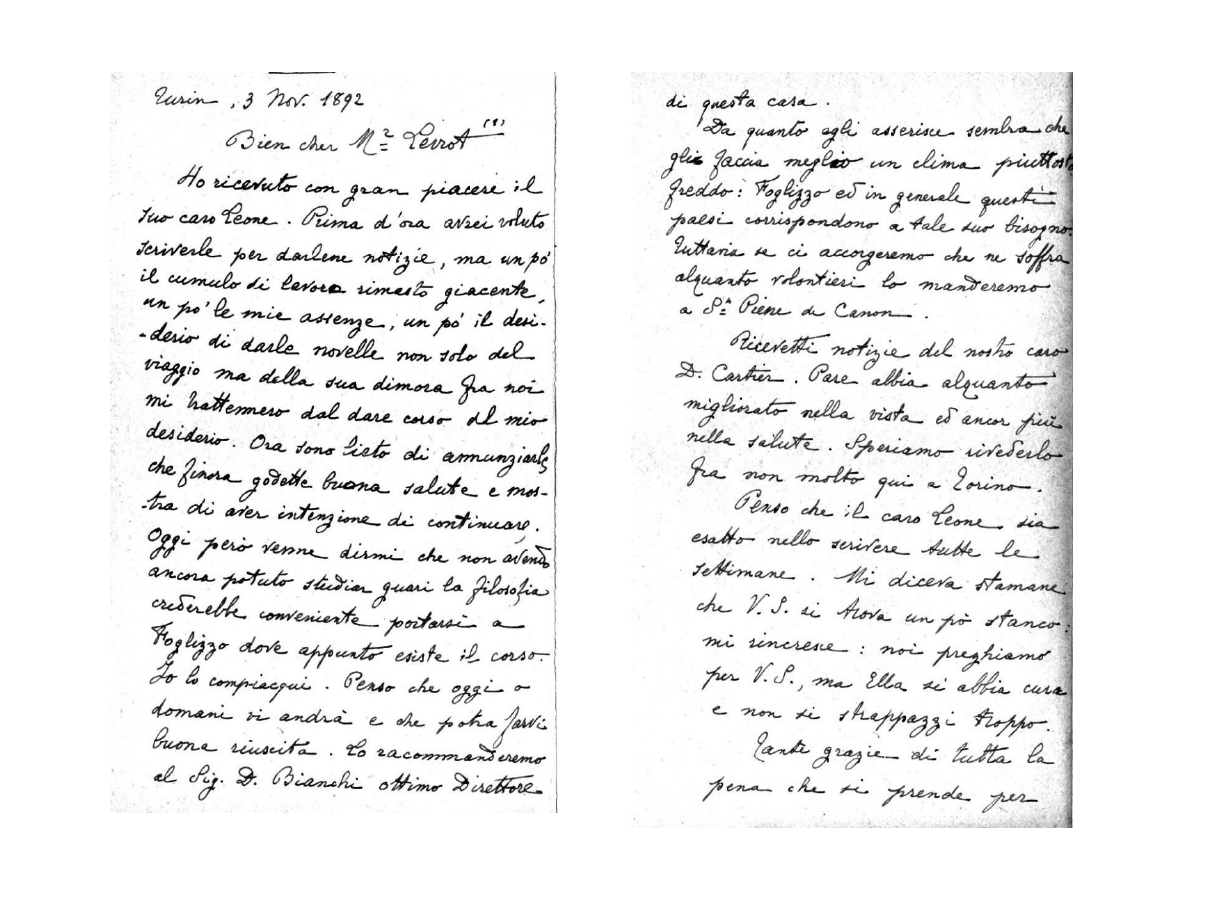 Turin, 3 Nov. 1892
Bien cher Mr Levrot (1)
Ho ricevuto con gran piacere il
suo caro Leone. Prima d'ora avrei voluto
scriverle per darlene notizie, ma un pò
il cumulo di lavoro rimasto giacente,
un po' le mie assenze, un pò il desi-
-derio di darle novelle non solo del
viaggio ma della sua dimora fra noi
mi trattennero dal dare corso al mio
desiderio. Ora sono lieto di annunziarle
che finora godette buona salute e mos-
-tra di aver intenzione di continuare.
Oggi però venne dirmi che non avendo
ancora potuto studiar guari la filosofia
crederebbe conveniente portarsi a
Foglizzo dove appunto esiste il corso.
Io lo compiacqui. Penso che oggi o
domani vi andrà e che potra farvi
buona riuscita. Lo raccommanderemo
al Sig. D. Bianchi ottimo Direttore
di questa casa.
Da quanto egli asserisce sembra che
gli faccia meglio un clima piuttosto
freddo: Foglizzo ed in generale questi
paesi corrispondono a tale suo bisogno.
Tuttavia se ci accorgeremo che ne soffra
alquanto volontieri lo manderemo
a Sn Pierre de Canon.
Ricevetti notizie del nostro caro
D. Cartier. Pare abbia alquanto
migliorato nella vista ed ancor più
nella salute. Speriamo rivederlo
fra non molto qui a Torino.
Penso che il caro Leone sia
esatto nello scrivere tutte le
settimane. Mi diceva stamane
che V. S. si trova un pò stanco:
mi rincresce: noi preghiamo
per V. S., ma Ella si abbia cura
e non si strappazzi troppo.
Tante grazie di tutta la
pena che si prende per